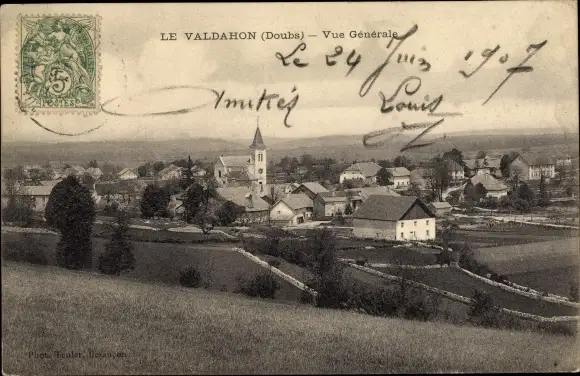 LE VALDAHON (Doubs) – Vue Générale
Le 24 Juin 1907
Amitiés
Louis
5c
POSTES
Phot. Teuler, Besançon